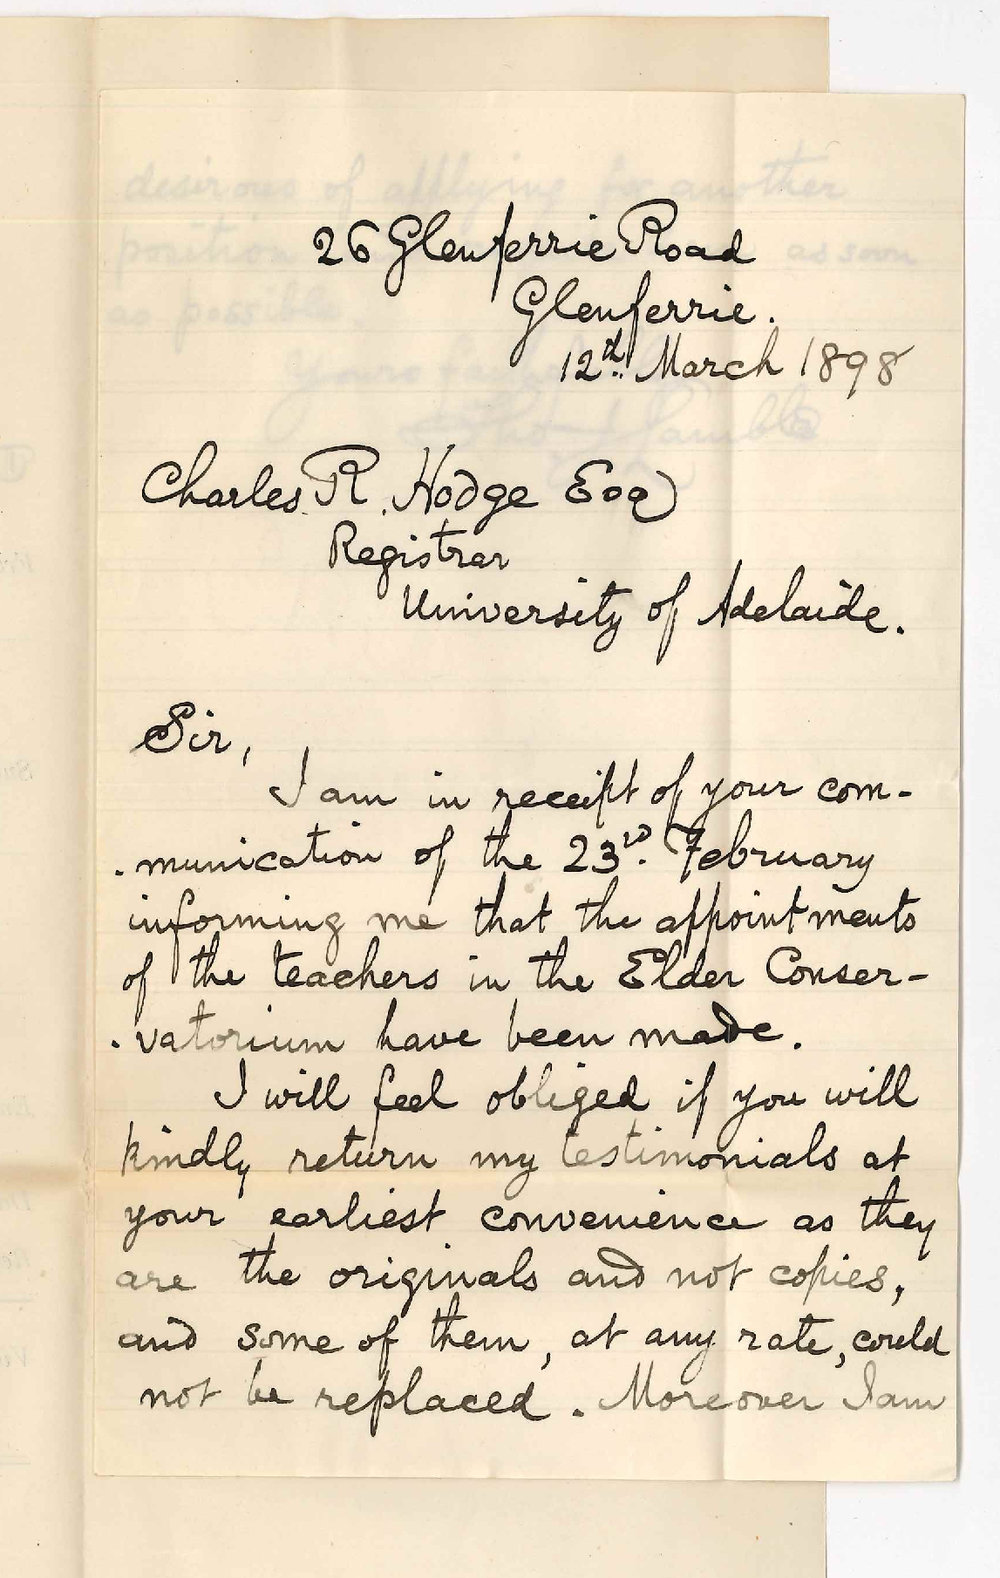 26 Glenferrie Road
Glenferrie.
12th. March 1898
Charles. R. Hodge Esq
Registrar
University of Adelaide.
Sir,
I am in receipt of your com-
-munication of the 23rd. February
informing me that the appointments
of the teachers in the Elder Conser-
-vatorium have been made.
I will feel obliged if you will
kindly return my testimonials at
your earliest convenience as they
are the originals and not copies,
and some of them, at any rate, could
not be replaced. Moreover I am
desirous of applying for another
position as soon
as possible.
Yours